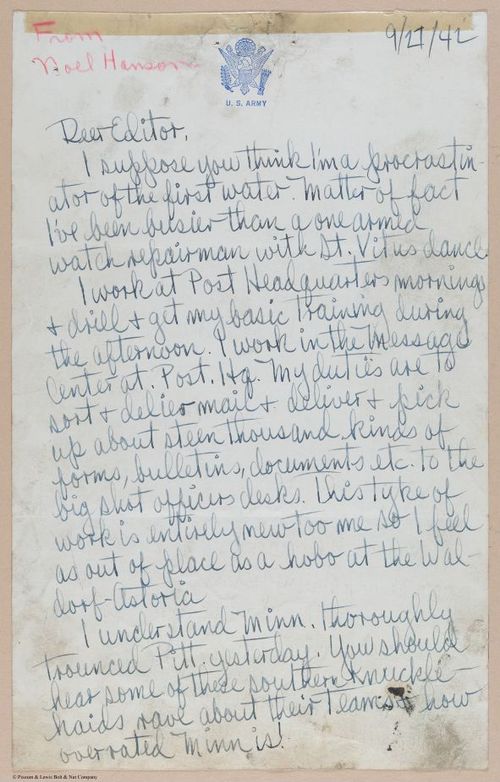 From
Noel Hanson
9/27/42
U.S. ARMY
Deer Editor,
I suppose you think I'm a procrastin-
ator of the first water. Matter of fact
I've been beisier than a one armed
watch repairman with St. Vitus dance.
I work at Post Headquarters mornings
& drill & get my basic training during
the afternoon. I work in the Message
Center at. Post. Hq. My duties are to
sort & delier mail & deliver & pick
up about steen thousand kinds of
forms, bulletins, documents etc. to the
big shot officers desks. This type of
work is entirely new too me so I feel
as out of place as a hobo at the Wal-
dorf-Astoria
I understand Minn. thoroughly
trounced Pitt. yesterday. You should
hear some of these southern knuckle-
haids rave about their teams & how
overrated Minn is!
© Possum & Lewis Bolt & Nut Company